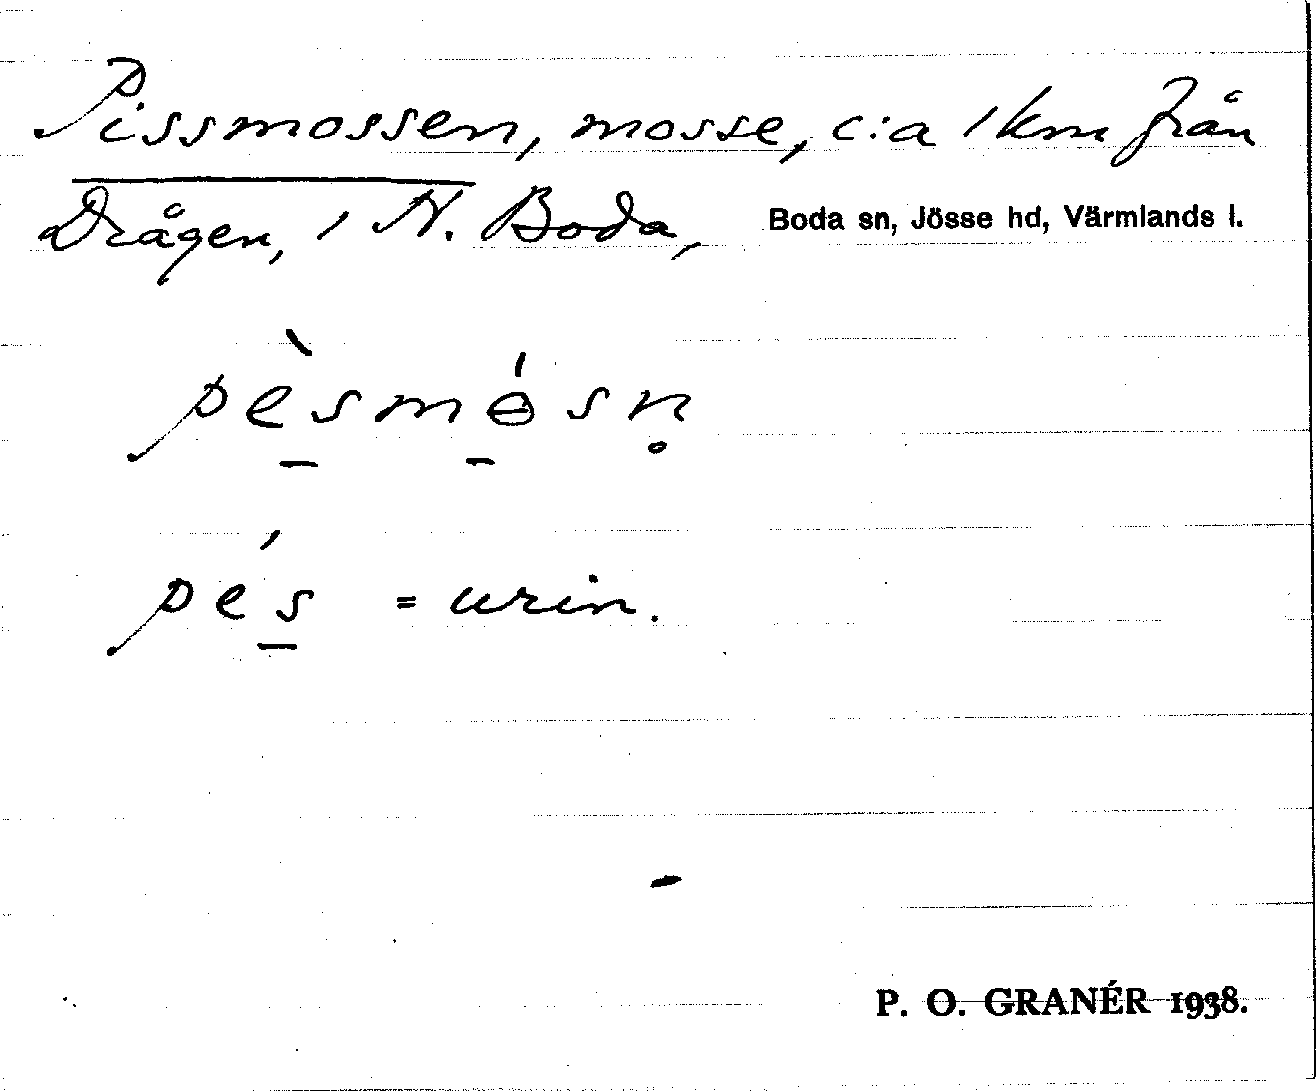 Pissmossen, mosse, c:a 1 km från
Drågen, 1 N. Boda, Boda sn, Jösse hd, Värmlands l.
pèsmósn̥
pés = urin.
P. O. GRANÉR 1938.